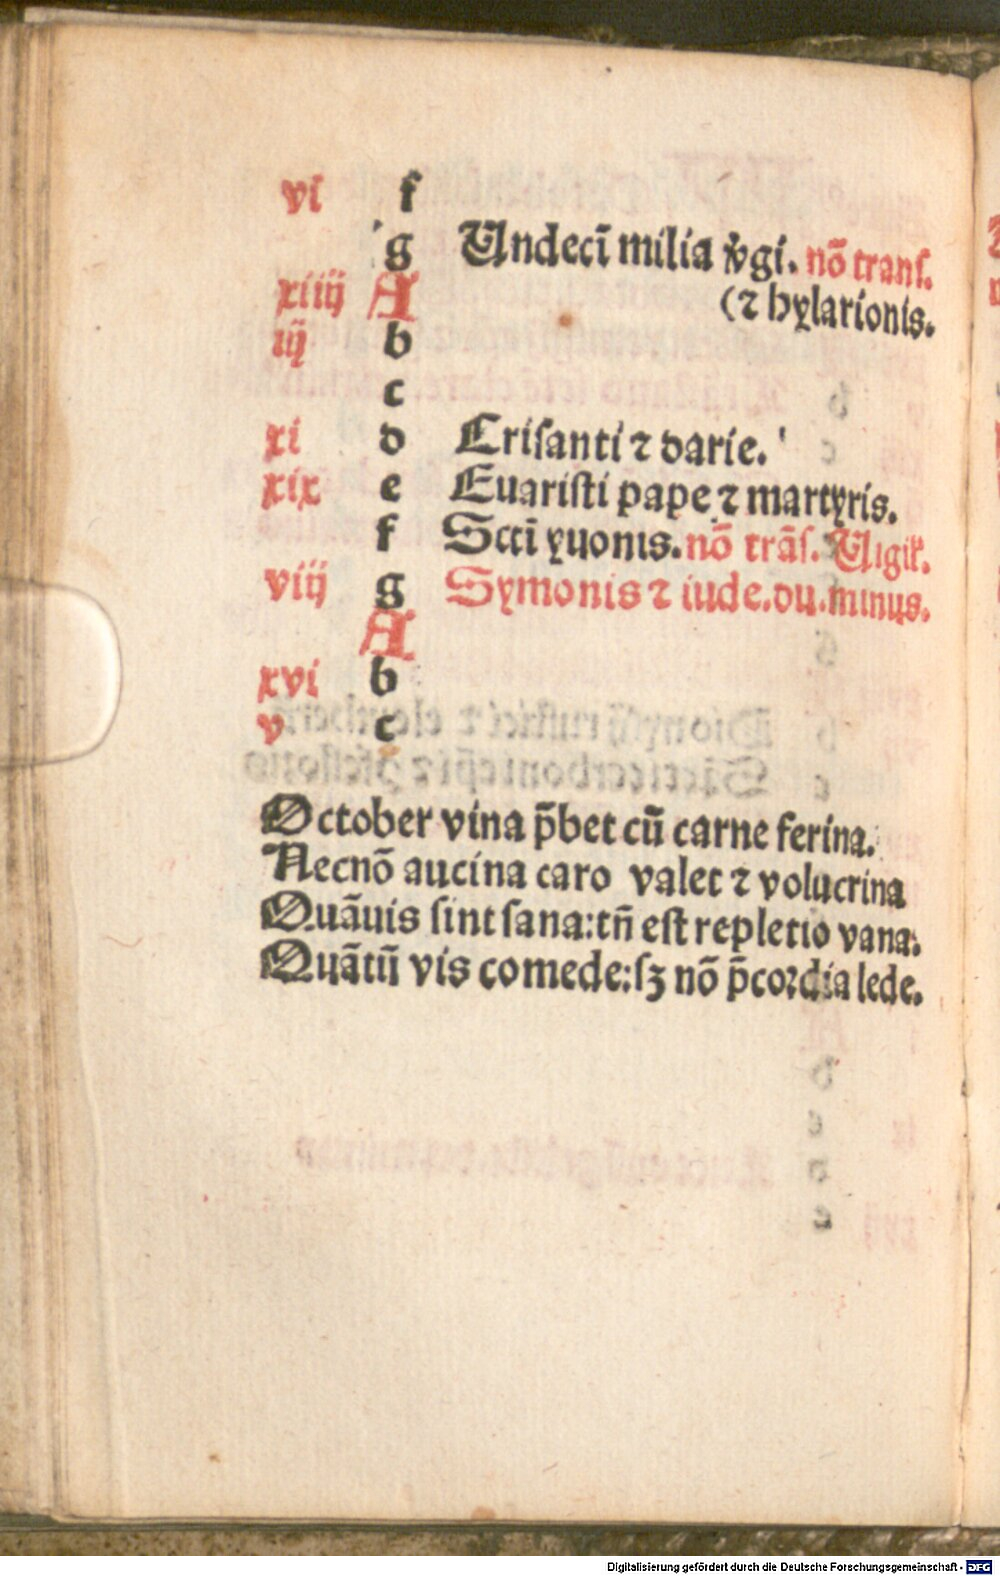 vi f
g Undecī milia v̄gi. nō trans.
xiiij A (⁊ hylarionis.
iij b
c
xi d Crisanti ⁊ darie.
xix e Euaristi pape ⁊ martyris.
f Sctī yuonis. nō trās. Uigil̄.
viij g Symonis ⁊ iude. du. minus.
A
xvi b
v c
October vina p̄bet cū carne ferina.
Necnō aucina caro valet ⁊ volucrina
Quāuis sint sana: tn̄ est repletio vana.
Quātū vis comede: sꝫ nō p̄cordia lede.
Digitalisierung gefördert durch die Deutsche Forschungsgemeinschaft - DFG